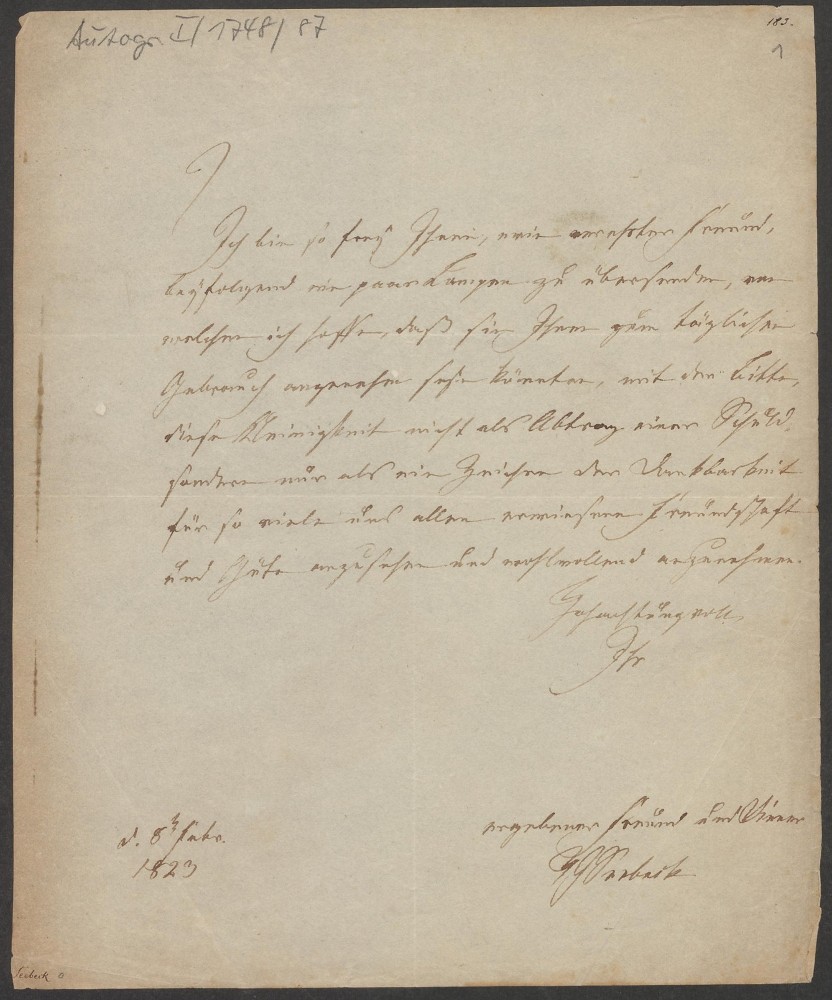 Autogr. I/1748/87
183.
1
Ich bin so frey Ihnen, mein verehrter Freund,
beyfolgend ein paar Lampen zu übersenden, von
welchen ich hoffe, daß sie Ihnen zum täglichen
Gebrauch angenehm seyn könnten, mit der Bitte,
diese Kleinigkeit nicht als Abtrag einer Schuld,
sondern nur als ein Zeichen der Dankbarkeit
für so viele uns allen erwiesene Freundschaft
und Güte anzusehen und wohlwollend anzunehmen.
Hochachtungsvoll
Ihr
ergebener Freund und Diener
TJSeebeck
d. 8ten Febr.
1823
Seebeck